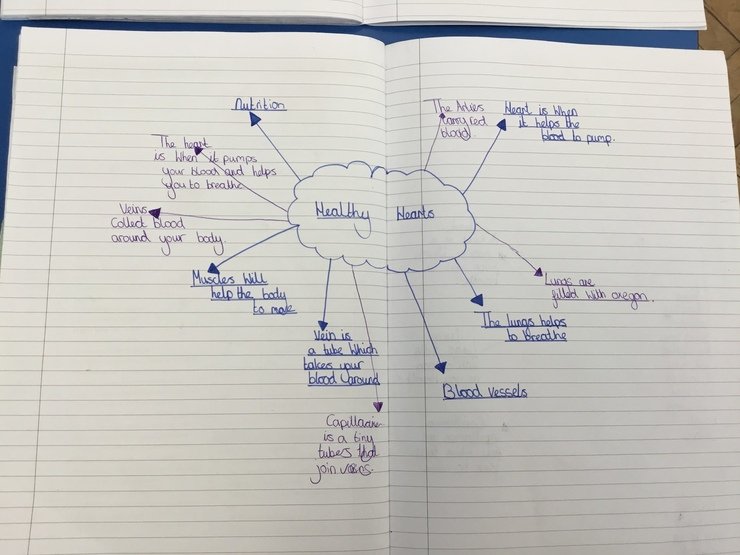 Nutrition
The heart
is when it pumps
your blood and helps
you to breathe
Veins
Collect blood
around your body.
Muscles will
help the body
to move
Vein is
a tube which
takes your
blood around
Capillaries
is a tiny
tubes that
join
Healthy Hearts
The
carry red
blood.
Heart is when
it helps the
blood to pump.
Lungs are
filled with oxegon.
The lungs helps
to breathe
Blood vessels